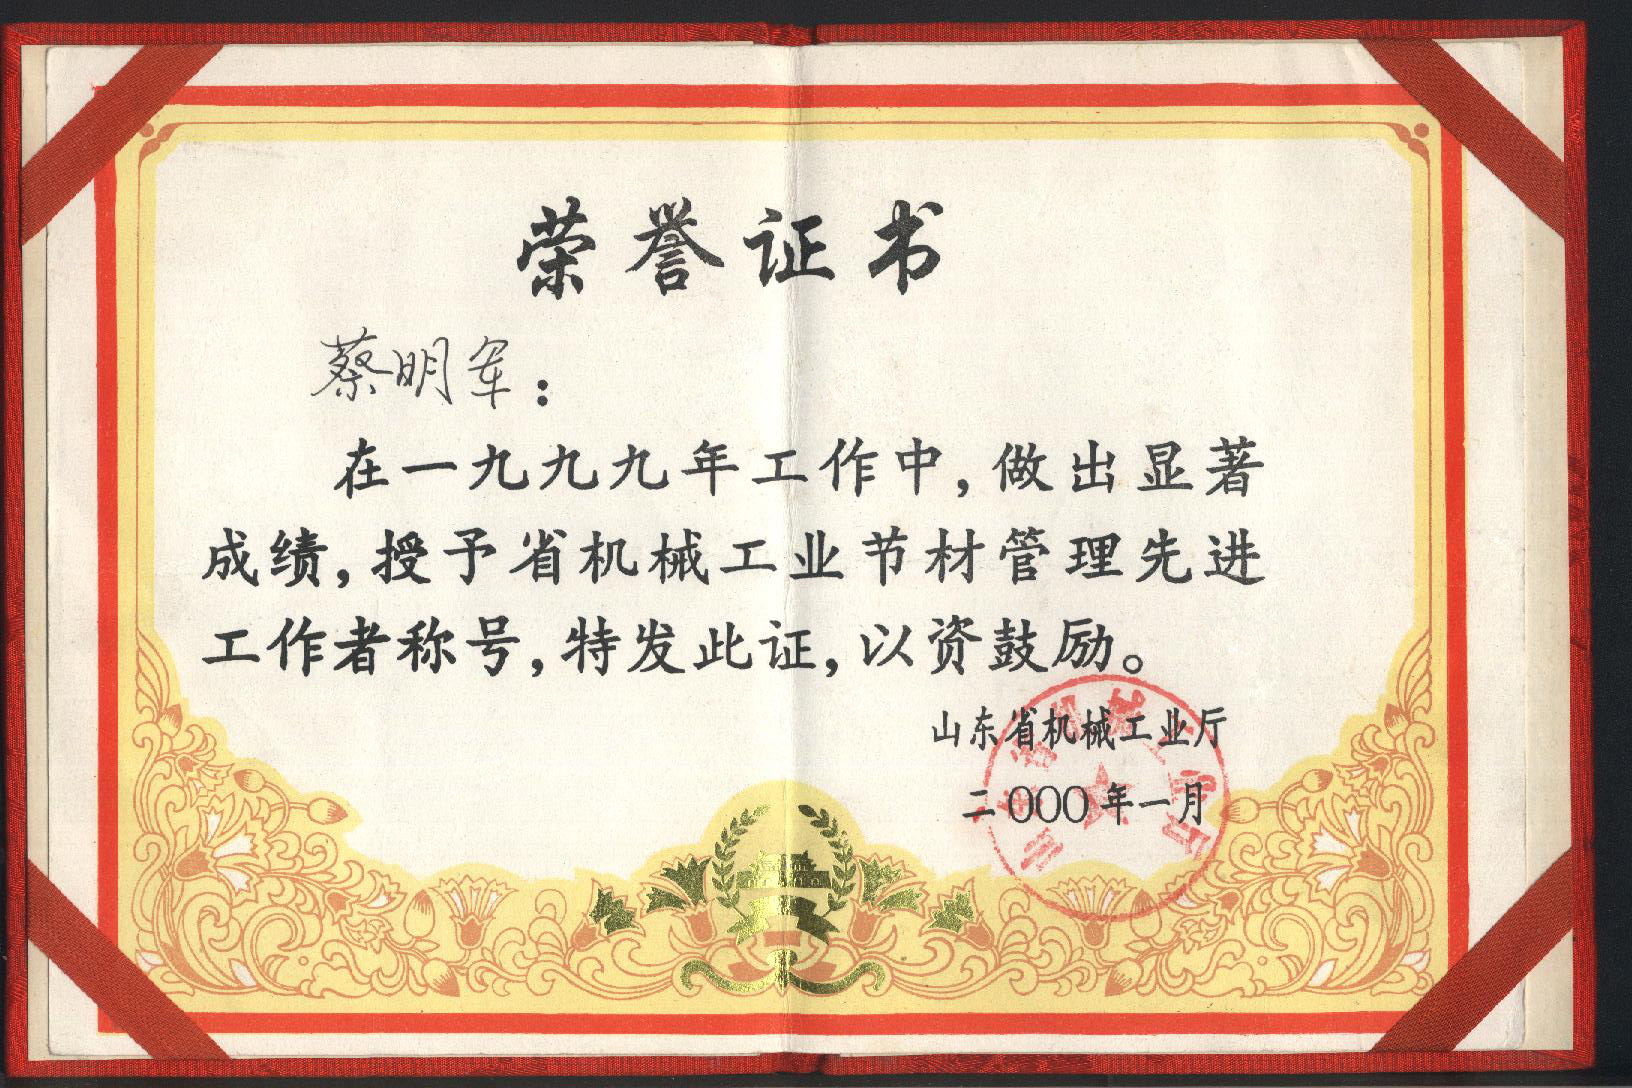 荣誉证书
蔡明军:
在一九九九年工作中,做出显著
成绩,授予省机械工业节材管理先进
工作者称号,特发此证,以资鼓励。
山东省机械工业厅
二000年一月